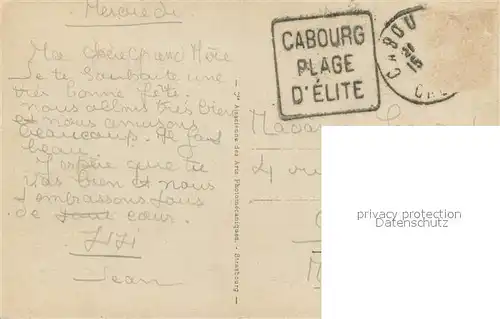 Mercredi
Ma chère grand Mère
Je te souhaite une
très bonne fête.
nous allons très bien
et nous amusons
beaucoup. Il fait
beau.
J'espère que tu
vas bien et nous
t'embrassons tous
de tout cœur.
Jean
CABOURG
PLAGE
D'ÉLITE
CABOU
Madame
4 ru
privacy protection
Datenschutz
Alsacienne des Arts Photomécaniques. - Strasbourg